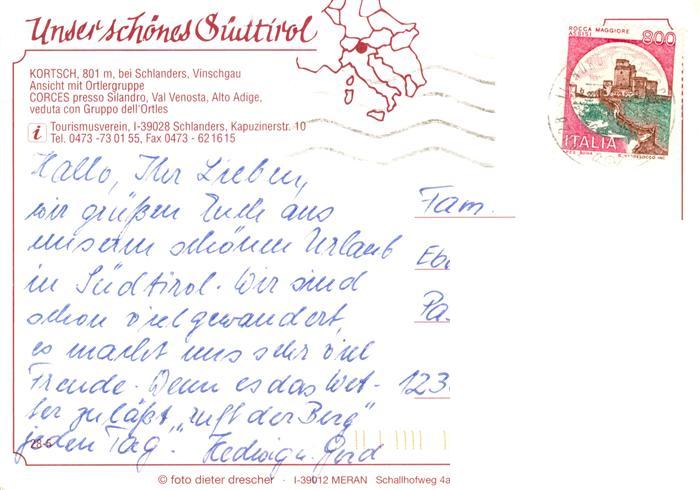 Unser schönes Südtirol
KORTSCH, 801 m, bei Schlanders, Vinschgau
Ansicht mit Ortlergruppe
CORCES presso Silandro, Val Venosta, Alto Adige,
veduta con Gruppo dell'Ortles
i Tourismusverein, I-39028 Schlanders, Kapuzinerstr. 10
Tel. 0473 - 73 01 55, Fax 0473 - 62 16 15
ROCCA MAGGIORE
ASSISI
800
ITALIA
Hallo, Ihr Lieben,
wir grüßen Euch aus
unserm schönen Urlaub
in Südtirol. Wir sind
schon viel gewandert,
es macht uns sehr viel
Freude. Wenn es das Wet-
ter zuläßt "ruft der Berg"
jeden Tag. Hedwig u. Gerd
Fam.
Eb
Pa
123
28-5
© foto dieter drescher · I-39012 MERAN Schallhofweg 4a